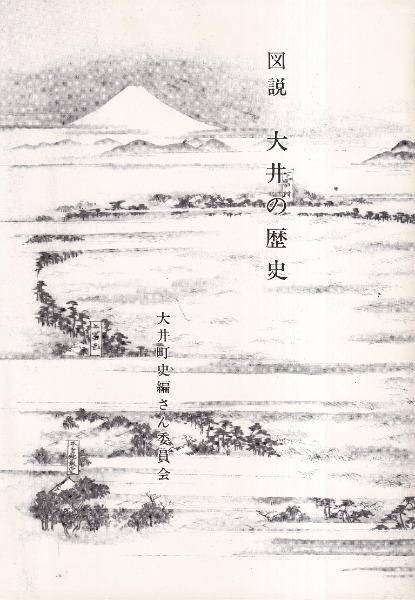 図説 大井の歴史
大井町史編さん委員会